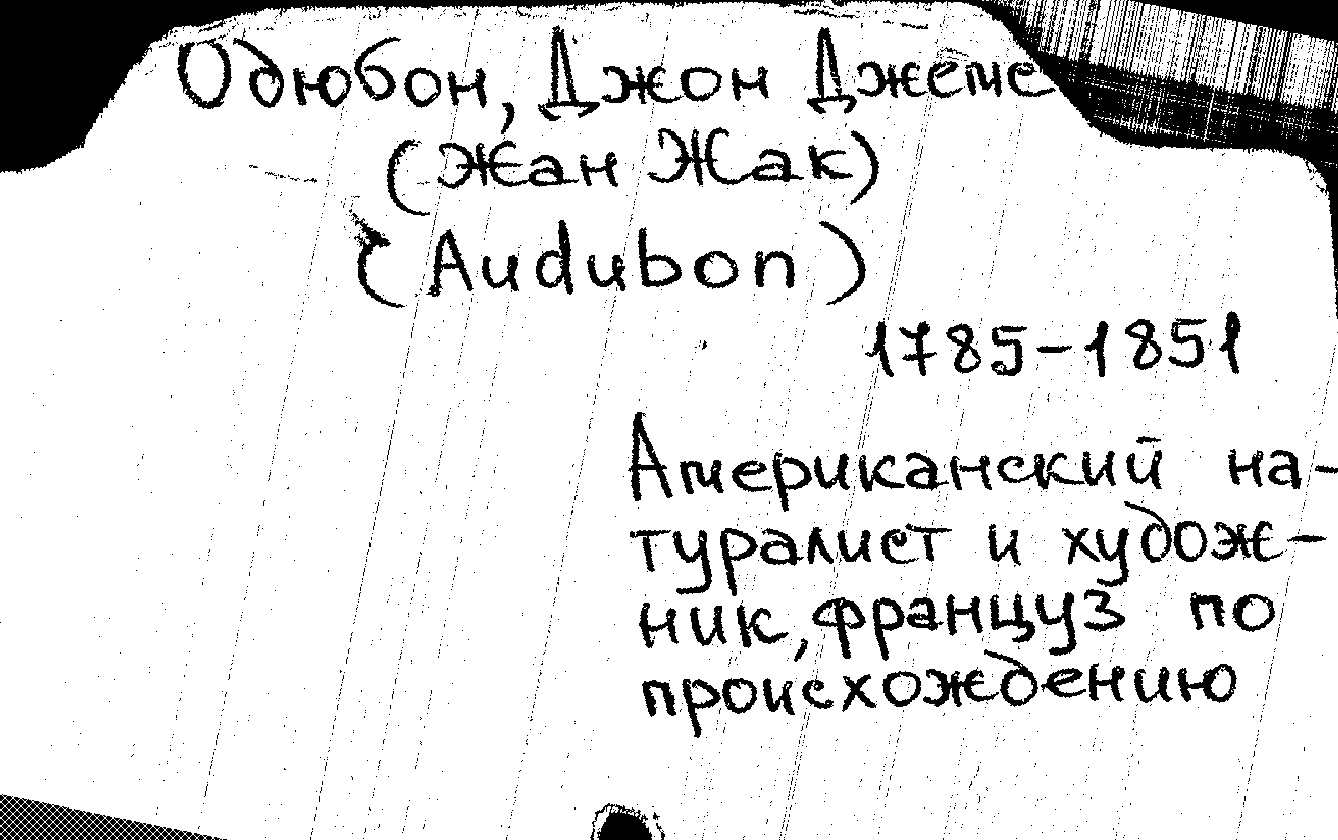 Одюбон, Джон Джеме
(Жан Жак)
(Audubon)
1785-1851
Американский на-
туралист и худож-
ник, француз по
происхождению